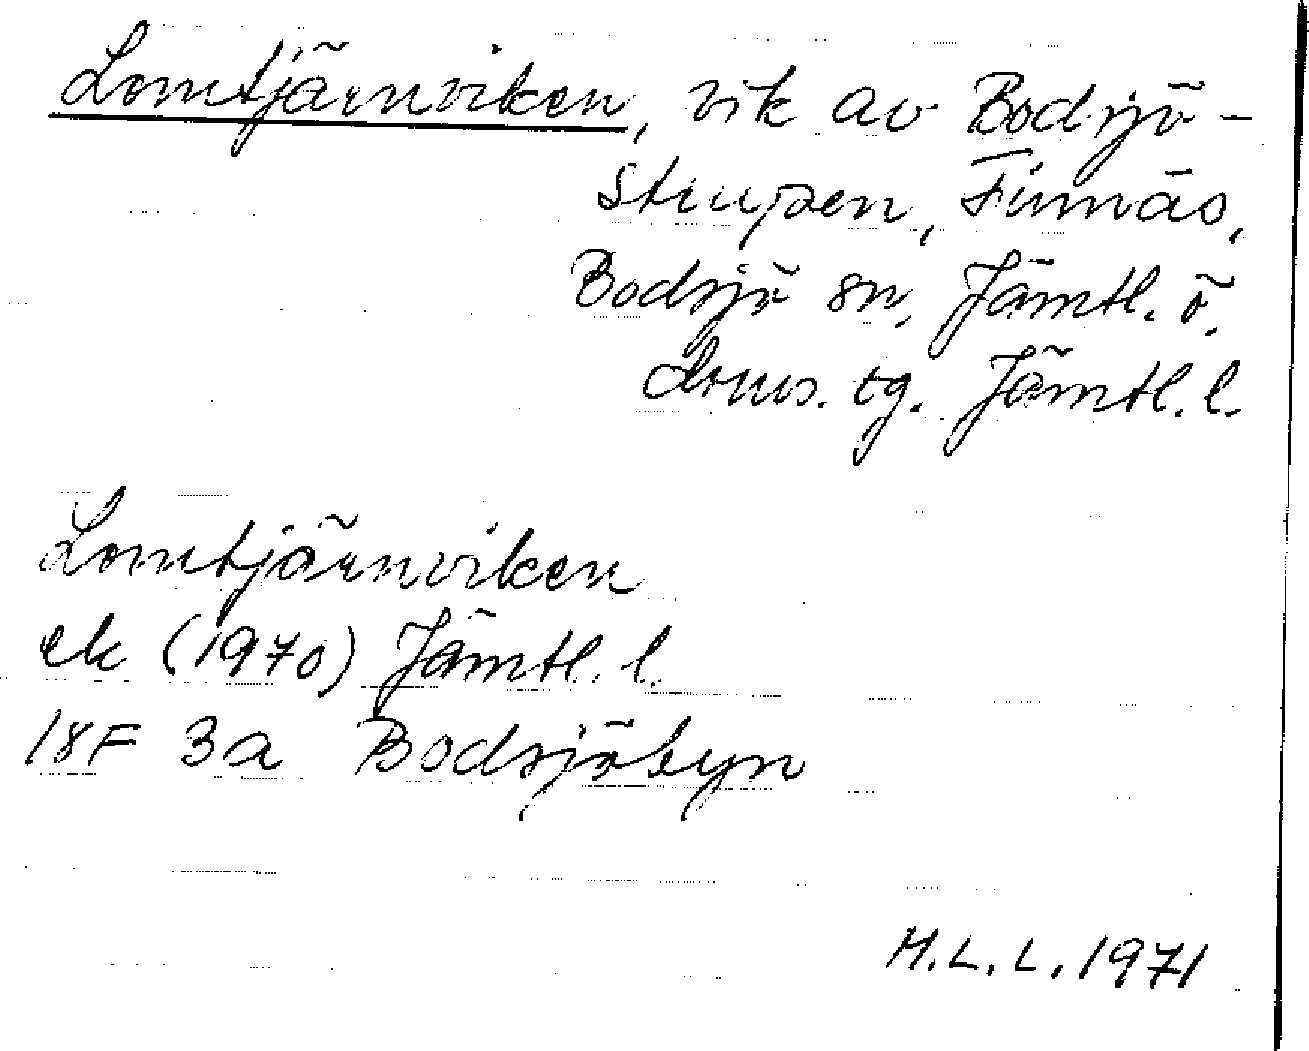 Lomtjärnviken, vik av Bodsjö-
Strupen, Finnäs,
Bodsjö sn, Jämtl. ö.
doms. tg. Jämtl. l.
Lomtjärnviken
ek (1970) Jämtl. l.
18F 3a Bodsjöbyn
H.L.L. 1971